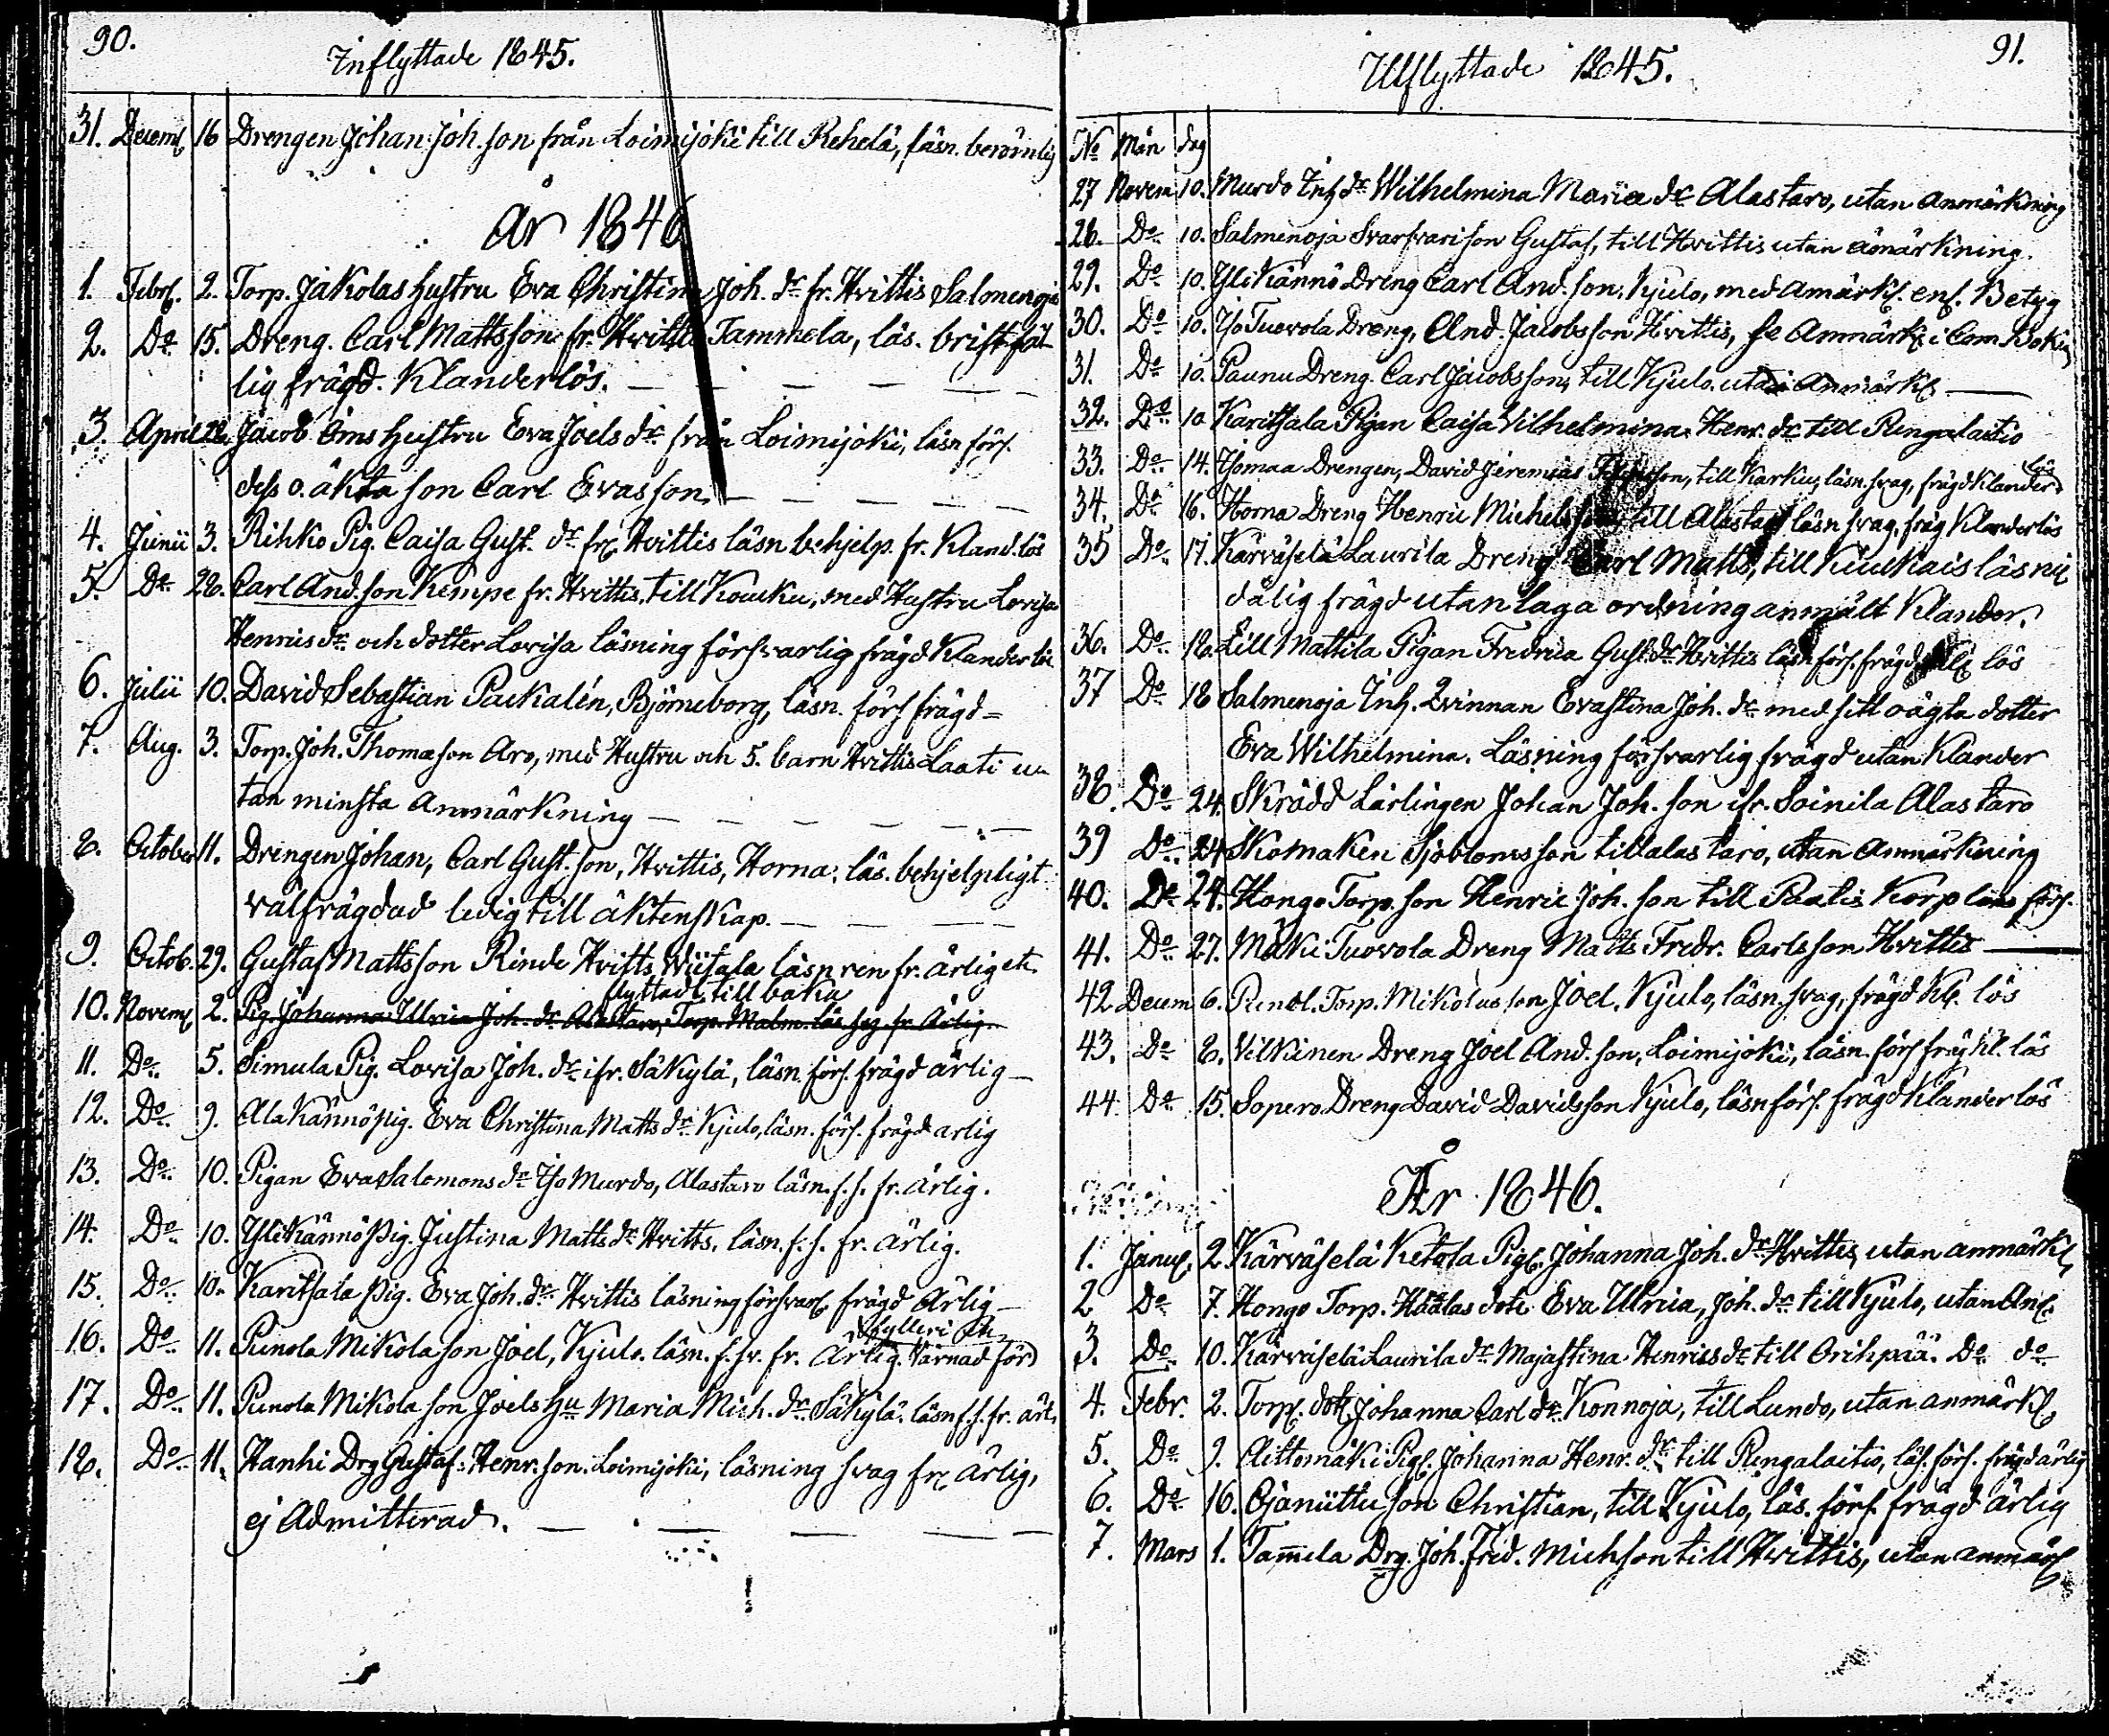 90.
Inflyttade 1845.
31. Decemb 16 Drengen Johan Joh. son från Loimijoki till Rehelä, läsn. berömlig
År 1846
1. Febr. 2. Torp. Jakolas hustru Eva Christina Joh. dr fr. Hvittis Salmenoja
2. Do 15. Dreng. Carl Mattsson fr. Hvittis Tammela, läs. bristfäl
lig frägd. Klanderlös.
3. April 26. Jacob Öms hustru Eva Joels dr från Loimijoki, läsn förs.
dess o. äkta son Carl Evasson
4. Junii 3. Rihko Pig. Caisa Gust. dr fr. Hvittis läsn behjelp. fr. Kland. lös
5. Do 28. Carl And. son Kempe fr. Hvittis, till Kouku, med Hustru Lovisa
Henrics dr och dotter Lovisa läsning försvarlig frägd Klanderlös
6. Julii 10. David Sebastian Packalén, Björneborg, läsn. förs frägd =
7. Aug. 3. Torp. Joh. Thomasson Aro, med Hustru och 5. barn Hvittis Laati u
tan minsta Anmärkning
8. October 11. Drengen Johan, Carl Gust. son, Hvittis, Horna, läs. behjelpligt
välfrägdad ledig till äktenskap.
9. Octob. 29. Gustaf Mattsson Rinde Hvitts Wiitala läsn ren fr. ärlig etc.
flyttade till baka
10. Novem 2. Pig. Johanna Ulrica Joh. dr Alastaro, Torp. Malm. läs. fr. Ärlig.
11. Do. 5. Simula Pig. Lovisa Joh. dr ifr. Säkylä, läsn. förs. frägd ärlig
12. Do. 9. Alakännö pig. Eva Christina Matts dr Kjulo, läsn. förs. frägd arlig
13. Do. 10. Pigan Eva Salomons dr Iso Murdo, Alastaro läsn. f. s. fr. ärlig.
14. Do. 10. Ylikännö Pig. Justina Matts dr Hvitts. läsn. f. s. fr. ärlig.
15. Do. 10. Karitsala Pig. Eva Joh. dr Hvittis läsning försvar frägd Ärlig
16. Do. 11. Punola Mikola son Joel, Kjulo. läsn. f. sv. fr. Ärlig. Varnad för
fylleri
17. Do. 11. Punola Mikola son Joels Hu Maria Mich. dr Säkylä. läsn f. s. fr. ärl.
18. Do. 11. Hanhi Drg Gustaf Henr. son. Loimijoki, läsning svag fr. ärlig,
ej Admitterad.
91.
Utflyttade 1845.
No Mån dag
27 Novem 10. Murdo Inh dr Wilhelmina Maria dr Alastaro, utan Anmärkning
28. Do. 10. Salmenoja Svarfvari son Gustaf, till Hvittis utan Amärkning.
29. Do 10. Ylikännö Dreng Carl And. son. Kjulo, med Amärk. enl. Betyg
30. Do 10. Iso Tuovola Dreng, And. Jacobsson Hvittis, se Anmärk i Com Bokin
31. Do 10. Paunu Dreng Carl Jacobsson, till Kjulo utan Anmärk
32. Do 10 Karitsala Pigan Caisa Vilhelmina Henr. dr till Pungalaitio
33. Do. 14. Isomaa Drengen, David Jeremias son, till Karku, läsn. svag, frägd Klander
lös
34. Do 16. Horna Dreng Henric Michelsson till Alastaro läsn svag, fräg Klanderlös
35 Do. 17. Kärväselä Laurila Dreng Carl Matts, till Kiukais läsn
dålig frägd utan laga ordning anmält Klander.
36. Do. 18. Lill Mattila Pigan Fredrica Gust. dr Hvittis läsn förs. frägd lös
37 Do 18 Salmenoja Inh. Qvinnan Evastina Joh. dr med sitt oägta dotter
Eva Wilhelmina. Läsning försvarlig frägd utan Klander
38. Do 24. Skrädd Lärlingen Johan Joh. son ifr. Soinila Alastaro
39 Do. 24 Skomaken Sjöblomsson till alastaro, utan Anmärkning
40. Do 24. Hongo Torp. son Henric Joh. son till Paatis Korp läs förs.
41. Do. 27. Mäki Tuovola Dreng Matts Fredr. Carlsson Hvittis
42 Decem 6. Punol. Torp. Mikolas son Joel. Kjulo, läsn. svag, frägd Kl. lös
43. Do 8. Vilkinen Dreng Joel And. son, Loimijoki, läsn. förs fräg kl. lös
44 Do 15. Sopero Dreng David Davidsson Kjulo, läsn förs. frägd Klanderlös
År 1846.
1. Janu. 2 Kärväselä Ketola Pig. Johanna Joh. dr Hvittis utan anmärk
2 Do 7. Hongo Torp. Häälas dote Eva Ulrica, Joh. dr till Kjulo, utan An
3. Do. 10. Kärväselä Laurila dr Majastina Henrics dr till Orihpää. Do do
4. Febr. 2. Torp. dott Johanna Carl dr Konnoja, till Lundo, utan anmärk
5. Do 9. Aittomäki Pig. Johanna Henr. dr till Pungalaitio, läs. förs. frägd ärlig
6. Do 16. Ojaniittu son Christian, till Kjulo, läs. förs. frägd ärlig
7. Mars 1. Tammela Drg. Joh. Fred. Michson till Hvittis, utan anmärk